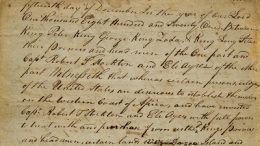 fifteenth day of December in the year of our Lord
One thousand Eight Hundred and Twenty One, Between
King Peter, King George, King Zoda, & King Long Peter
their Princes and head men of the One part; and
Captn Robert F. Stockton and Eli Ayres of the other
part. Witnesseth that whereas certain persons, citizens
of the United States are desirous to establish themselves
on the Western Coast of Africa, and have invested
Captn Robert F. Stockton and Eli Ayres with full powers
to treat with and purchase from us the Kings Princes
and head men, certain lands Dozoa Island and